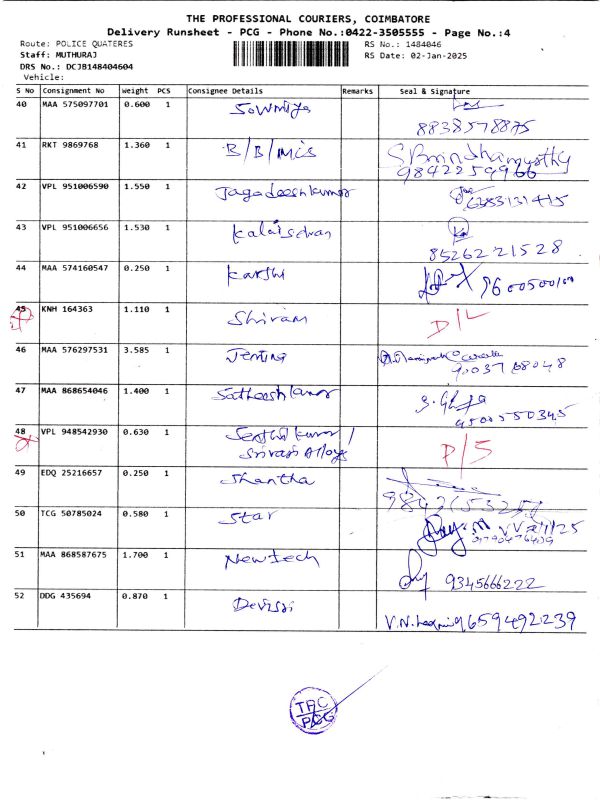 THE PROFESSIONAL COURIERS, COIMBATORE
Delivery Runsheet - PCG - Phone No.:0422-3505555 - Page No.:4
Route: POLICE QUATERES RS No.: 1484046
Staff: MUTHURAJ RS Date: 02-Jan-2025
DRS No.: DCJB148404604
Vehicle:
S No Consignment No Weight PCS Consignee Details Remarks Seal & Signature
40 MAA 575097701 0.600 1 Sowmiya
8838578875
41 RKT 9869768 1.360 1 B/B/Mis
9842259966
42 VPL 951006590 1.550 1 Jagadeeshkumar 6383131415
43 VPL 951006656 1.530 1 Kalaiselvan
8526221528
44 MAA 574160547 0.250 1 Karthi
45 KNH 164363 1.110 1 Shiram D/L
46 MAA 576297531 3.585 1
47 MAA 868654046 1.400 1 Satheeshkumar
9500550345
48 VPL 948542930 0.630 1 Senthil kumar /
Srivari Alloys
49 EDQ 25216657 0.250 1 Shantha
50 TCG 50785024 0.580 1 Star
51 MAA 868587675 1.700 1 Newtech
9345666222
52 DDG 435694 0.870 1 Devisri
V.N. 9659492239
PCG